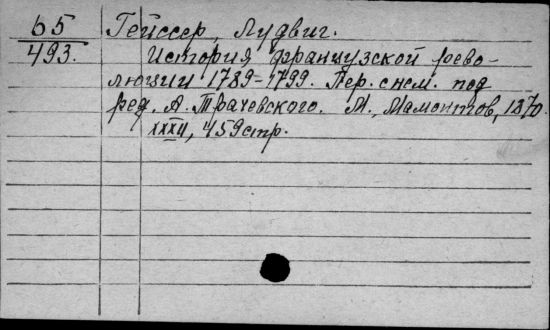 65 Гейссер, Людвиг.
493. История французской рево-
люции 1789-1799. Пер. с нем. под
ред. А. Трачевского. М., Мамонтов, 1870.
XXXII, 459 стр.